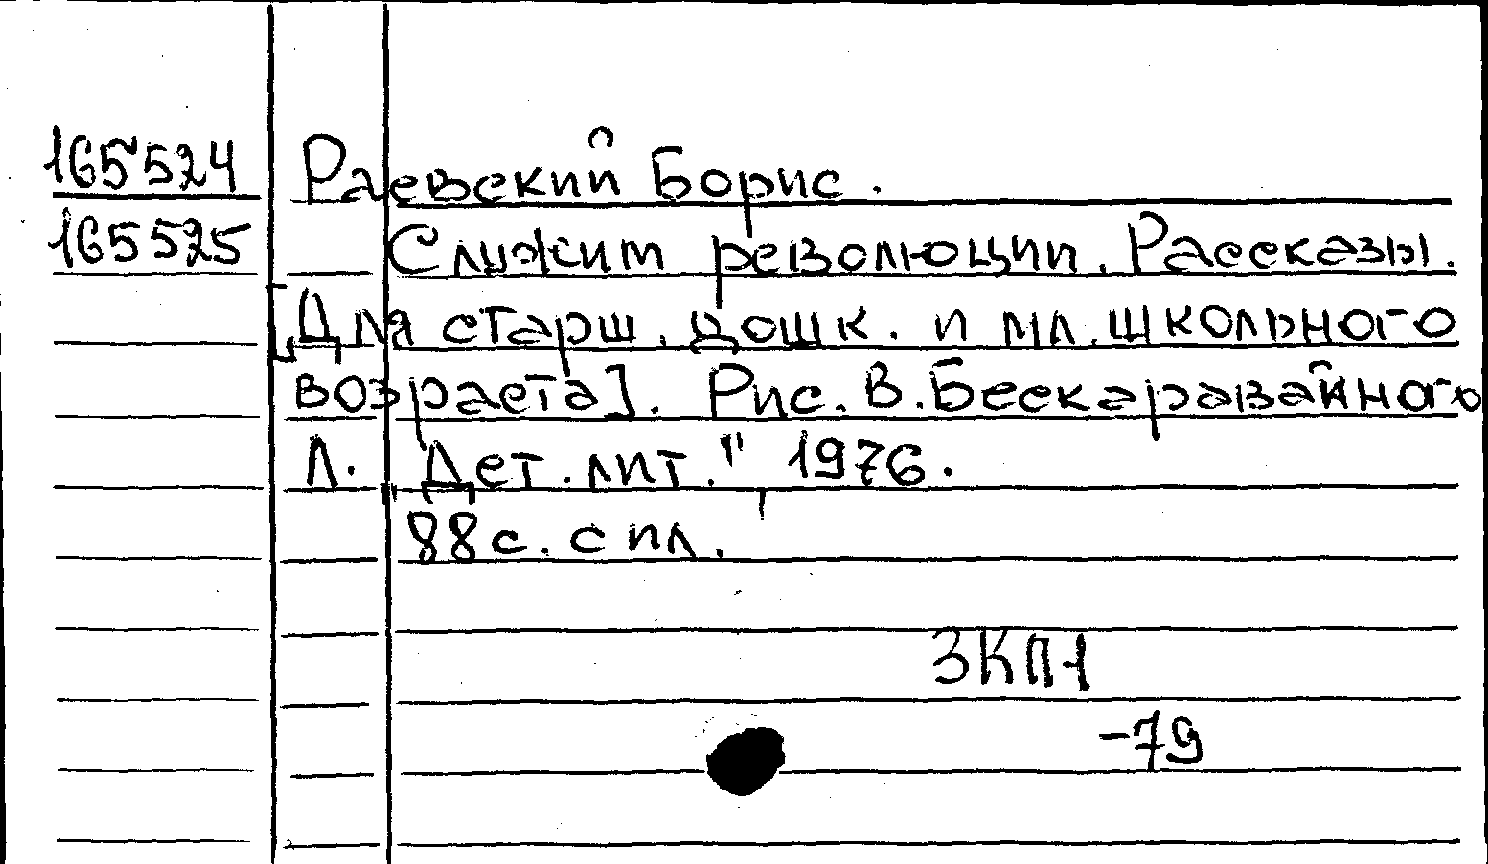 165524 Раевский Борис.
165525 Служит революции. Рассказы.
[Для старш. дошк. и мл. школьного
возраста]. Рис. В. Бескаравайного
Л. „Дет. лит.", 1976.
88 с. с ил.
ЗКП-1
-79